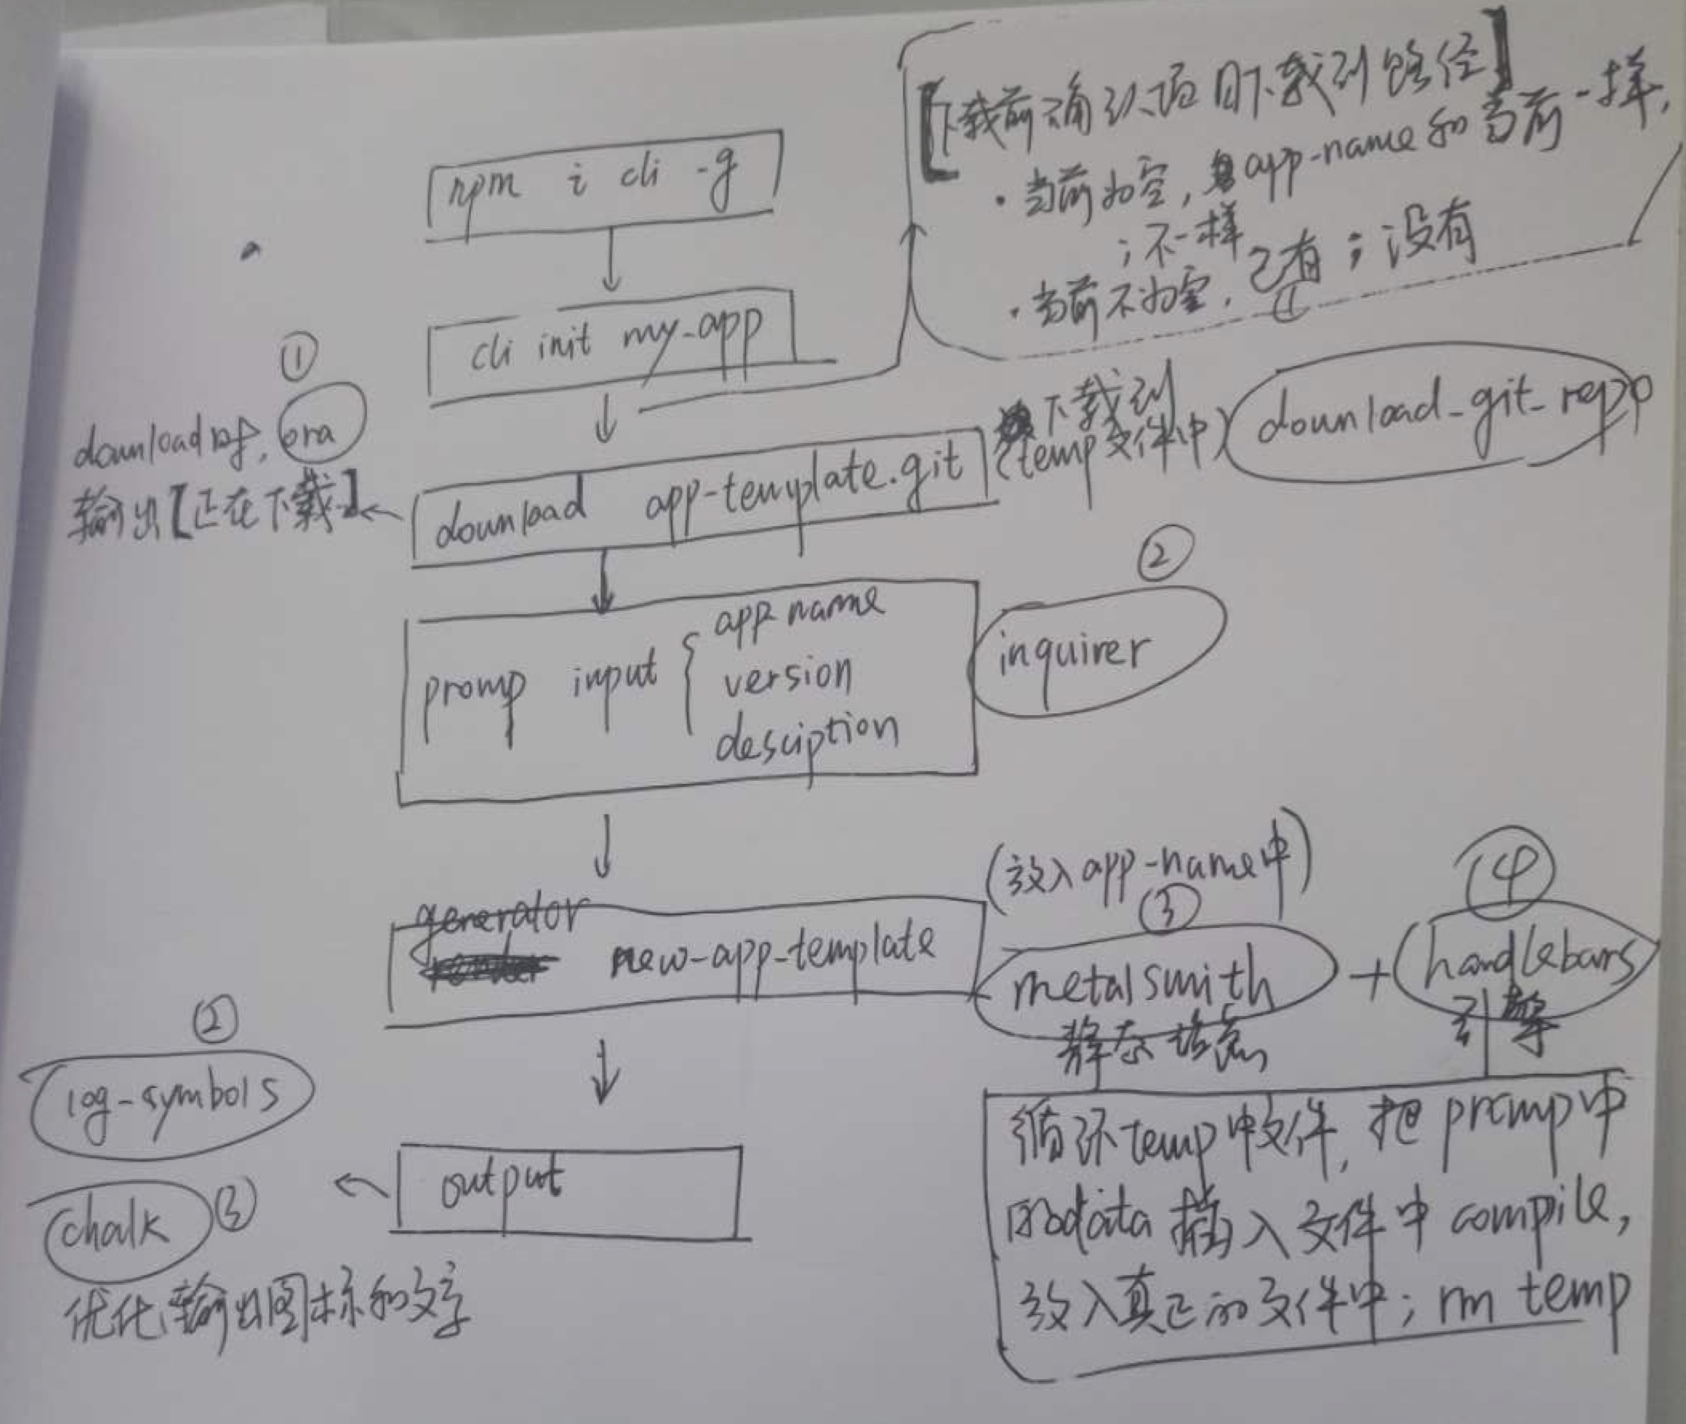 npm i cli -g
【下载前确认项目下载到路径】
· 当前为空，app-name和当前一样，
；不一样
· 当前不为空，已有；没有
cli init my-app
①
download时，ora
输出【正在下载】
download app-template.git
下载到
(temp文件中)
download-git-repo
promp input { app name
version
desciption
②
inquirer
generator new-app-template
(放入app-name中)
③
metalsmith
静态
+
④
handlebars
引擎
循环temp中文件，把promp中
的data插入文件中compile，
放入真正的文件中；rm temp
output
②
log-symbols
chalk ③
优化输出图标和文字